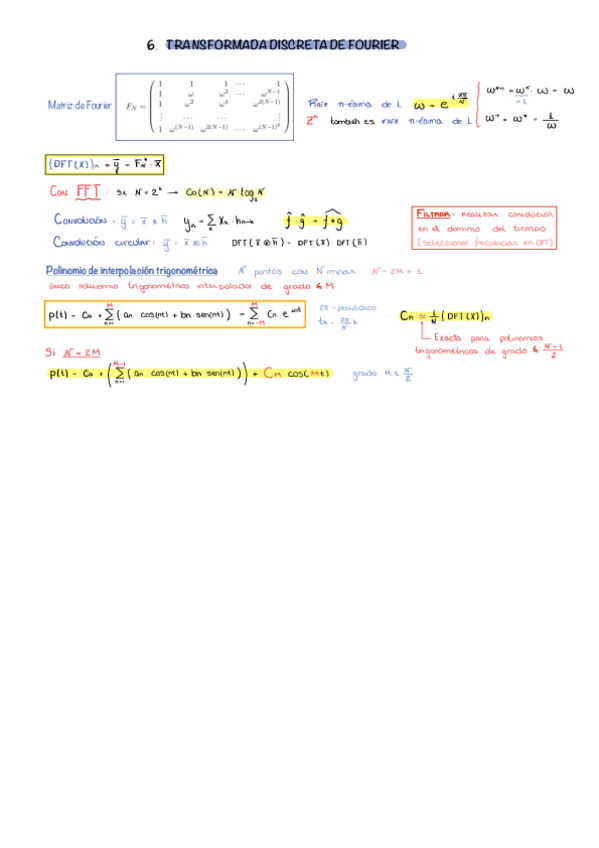 6. TRANSFORMADA DISCRETA DE FOURIER
Matriz de Fourier
F_N = ( 1 1 1 ⋯ 1
1 ω ω² ⋯ ω^{N−1}
1 ω² ω⁴ ω^{2(N−1)}
⋮ ⋯ ⋯ ⋮
1 ω^{(N−1)} ω^{2(N−1)} ⋯ ω^{(N−1)²} )
Raíz n-ésima de 1 ω = e^{i 2π/N}
Z^k también es raíz n-ésima de 1
= 1
(DFT(x̄))n = ȳ = F_N^* · x̄
Con FFT : Si N = 2^k → Co(N) = N·log₂ N
Convolución = ȳ = x̄ ⊛ h̄ yn = Σ_k Xk · hn-k f̂ · ĝ = f*g
Convolución circular: ȳ = x̄ ⊛ h̄ DFT(x̄ ⊛ h̄) = DFT(x̄) · DFT(h̄)
Filtrar: realizar convolución
en el dominio del tiempo
(seleccionar frecuencias en DFT)
Polinomio de interpolación trigonométrica N puntos con N impar N = 2M + 1
único polinomio trigonométrico interpolador de grado ≤ M
p(t) = Co + Σ_{n=1}^{M} (an · cos(nt) + bn · sen(nt)) = Σ_{n=-M}^{M} Cn · e^{int}
2π-periódico
tk = 2π/N k
Cn ≃ 1/N (DFT(x̄))n
Exacto para polinomios
trigonométricos de grado ≤ N-1/2
Si N = 2M
p(t) = Co + (Σ_{n=1}^{M-1} (an · cos(nt) + bn · sen(nt))) + CM · cos(Mt) grado M ≤ N/2